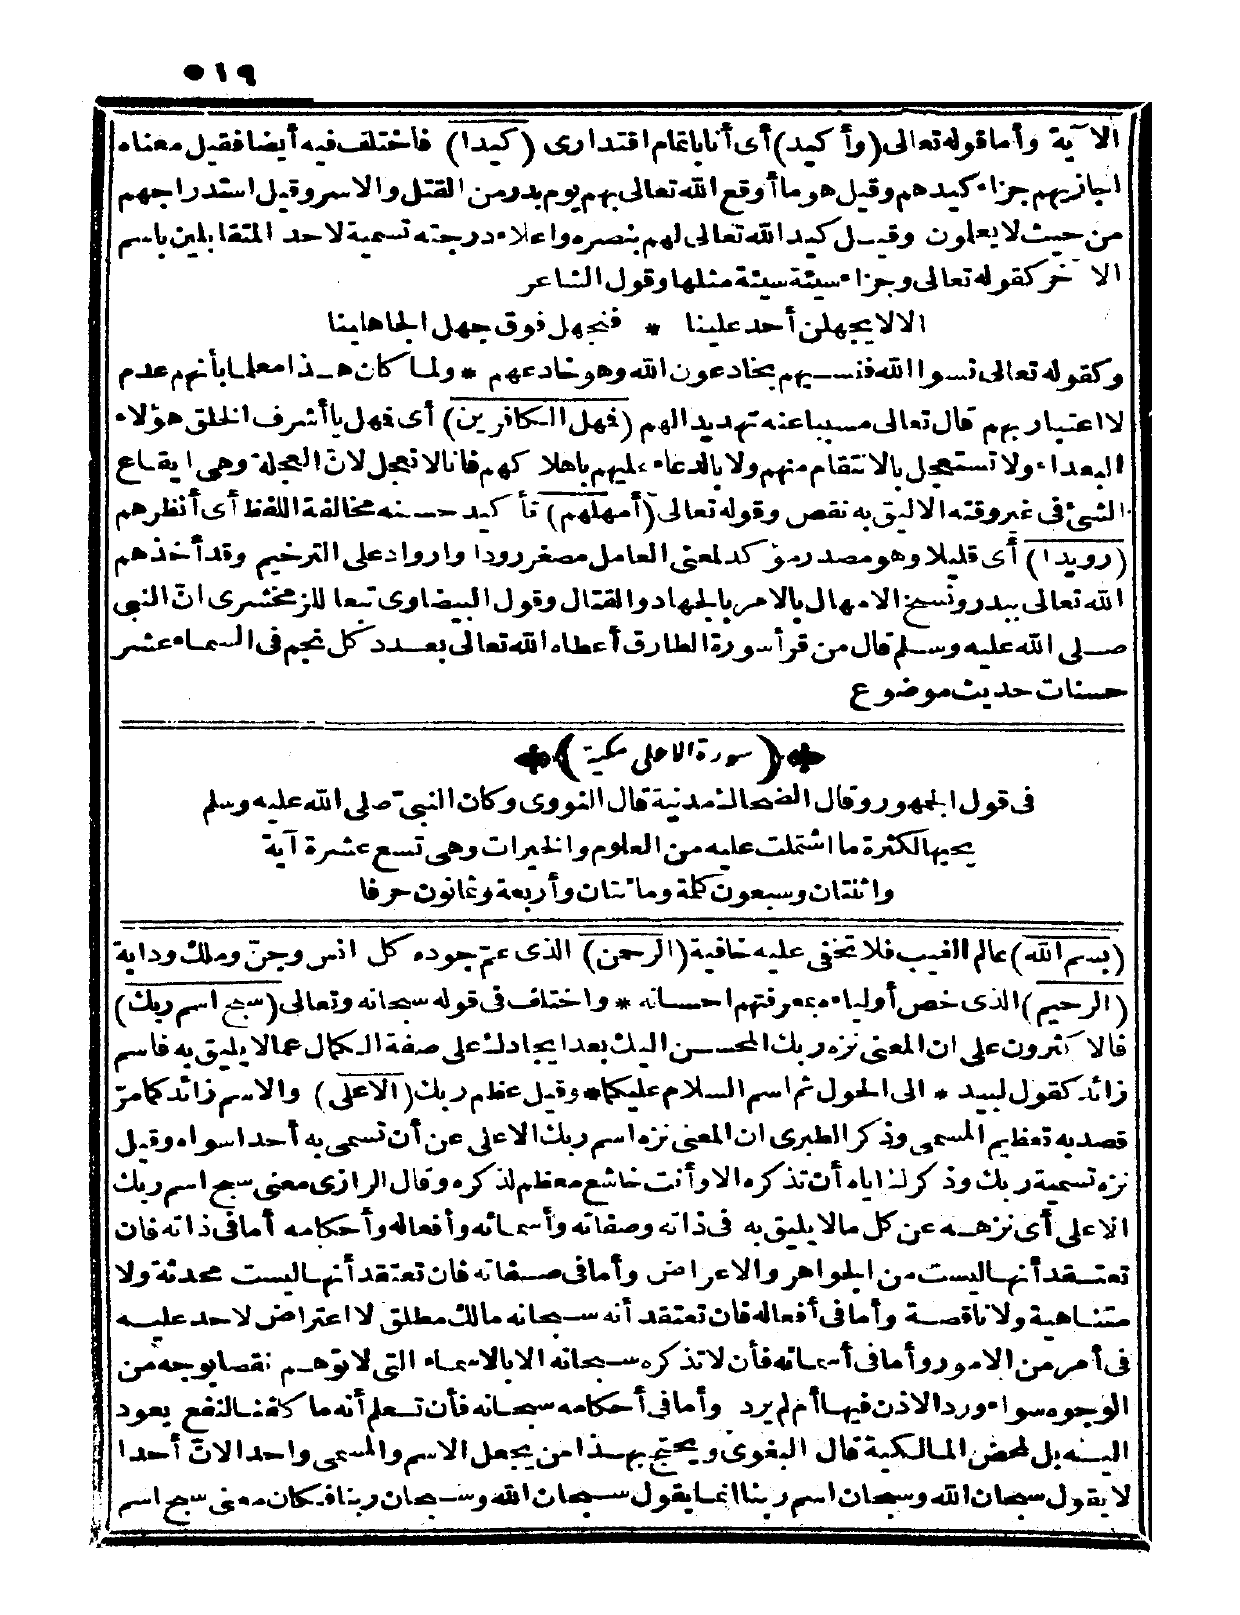 ٥١٩
الآية وأما قوله تعالى (وأكيد) أى أنا باتمام اقتدارى (كيدا) فاختلف فيه أيضا فقيل معناه
اجازيهم جزاء كيدهم وقيل هو ما أوقع الله تعالى بهم يوم بدر من القتل والاسر وقيل استدراجهم
من حيث لا يعلمون وقيل كيد الله تعالى لهم بنصره واعلاء درجته تسمية لاحد المتقابلين باسم
الآخر كقوله تعالى وجزاء سيئة سيئة مثلها وقول الشاعر
الا لا يجهلن أحد علينا * فنجهل فوق جهل الجاهلينا
وكقوله تعالى نسوا الله فنسيهم يخادعون الله وهو خادعهم * ولما كان هذا معلما بأنهم عدم
لا اعتبار بهم قال تعالى مسببا عنه تهديدا لهم (فهل الكافرين) أى فهل يا أشرف الخلق هؤلاء
البعداء ولا تستعجل بالانتقام منهم ولا بالدعاء عليهم باهلاكهم فانا لا نعجل لانّ العجلة وهى ايقاع
الشئ فى غير وقته الاليق به نقص وقوله تعالى (أمهلهم) تأكيد حسنه مخالفة اللفظ أى أنظرهم
(رويدا) أى قليلا وهو مصدر مؤكد لمعنى العامل مصغر رودا وارواد على الترخيم وقد أخذهم
الله تعالى ببدر ونسخ الامهال بالامر بالجهاد والقتال وقول البيضاوى تبعا للزمخشرى انّ النبى
صلى الله عليه وسلم قال من قرأ سورة الطارق أعطاه الله تعالى بعدد كل نجم فى السماء عشر
حسنات حديث موضوع
(سورة الاعلى مكية)
فى قول الجمهور وقال الضحاك مدنية قال النووى وكان النبىّ صلى الله عليه وسلم
يحبها لكثرة ما اشتملت عليه من العلوم والخيرات وهى تسع عشرة آية
واثنتان وسبعون كلمة ومائتان وأربعة وثمانون حرفا
(بسم الله) عالم الغيب فلا تخفى عليه خافية (الرحمن) الذى عمّ جوده كل انس وجنّ وملك ودابة
(الرحيم) الذى خص أولياءه بمعرفتهم احسانه * واختلف فى قوله سبحانه وتعالى (سبح اسم ربك)
فالاكثرون على ان المعنى نزه ربك المحسن اليك بعد ايجادك على صفة الكمال عما لا يليق به فاسم
زائد كقول لبيد * الى الحول ثم اسم السلام عليكما * وقيل عظم ربك (الاعلى) والاسم زائد كما مرّ
قصد به تعظيم المسمى وذكر الطبرى ان المعنى نزه اسم ربك الاعلى عن أن تسمى به أحدا سواه وقيل
نزه تسمية ربك وذكرك اياه أن تذكره الا وأنت خاشع معظم لذكره وقال الرازى معنى سبح اسم ربك
الاعلى أى نزهه عن كل ما لا يليق به فى ذاته وصفاته وأسمائه وأفعاله وأحكامه أما فى ذاته فان
تعتقد أنها ليست من الجواهر والاعراض وأما فى صفاته فان تعتقد أنها ليست محدثة ولا
متناهية ولا ناقصة وأما فى أفعاله فان تعتقد أنه سبحانه مالك مطلق لا اعتراض لاحد عليه
فى أمر من الامور وأما فى أسمائه فأن لا تذكره سبحانه الا بالاسماء التى لا توهم نقصا بوجه من
الوجوه سواء ورد الاذن فيها أم لم يرد وأما فى أحكامه سبحانه فأن تعلم أنه ما كلفنا لنفع يعود
اليه بل لمحض المالكية قال البغوى ويحتج بهذا من يجعل الاسم والمسمى واحدا لانّ أحدا
لا يقول سبحان الله وسبحان اسم ربنا انما يقول سبحان الله وسبحان ربنا فكان معنى سبح اسم